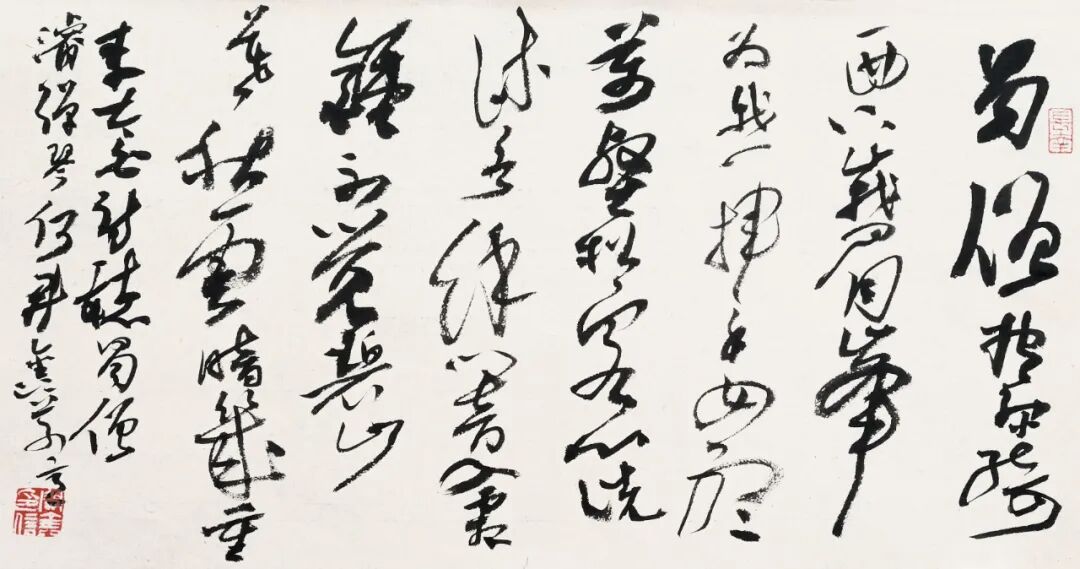 蜀僧抱綠綺
西下峨眉峯
为我一揮手如聽
萬壑松客心洗
流水餘響入霜
鐘不覺碧山
暮秋雲暗幾重
李太白詩聽蜀僧
濬彈琴